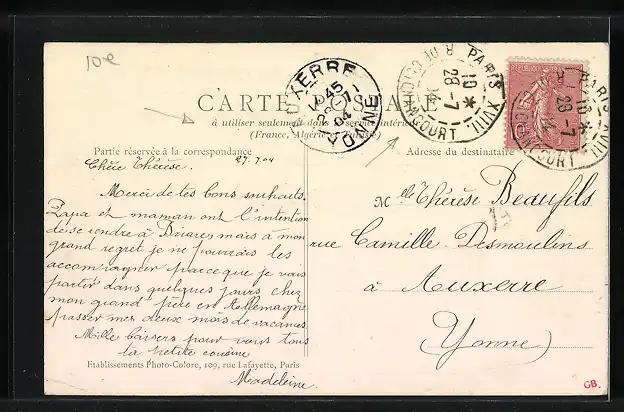 10e
CARTE POSTALE
à utiliser seulement dans le service intérieur
(France, Algérie et Tunisie)
AUXERRE
YONNE
PARIS XVIII
R DE CLIGNANCOURT
10 *
28-7
04
PARIS XVIII
10 *
28-7
Partie réservée à la correspondance
Adresse du destinataire
27.7.04
Chère Thérèse.
Merci de tes bons souhaits.
Papa et maman ont l'intention
de se rendre à Dinard, mais à mon
grand regret je ne pourrais les
accompagner parce que je vais
partir dans quelques jours chez
mon grand-père en Allemagne
passer mes deux mois de vacances
Mille baisers pour vous tous
ta petite cousine
Madeleine.
Mlle Thérèse Beaufils
rue Camille-Desmoulins
à Auxerre
Yonne)
Etablissements Photo-Colore, 109, rue Lafayette, Paris
GB.